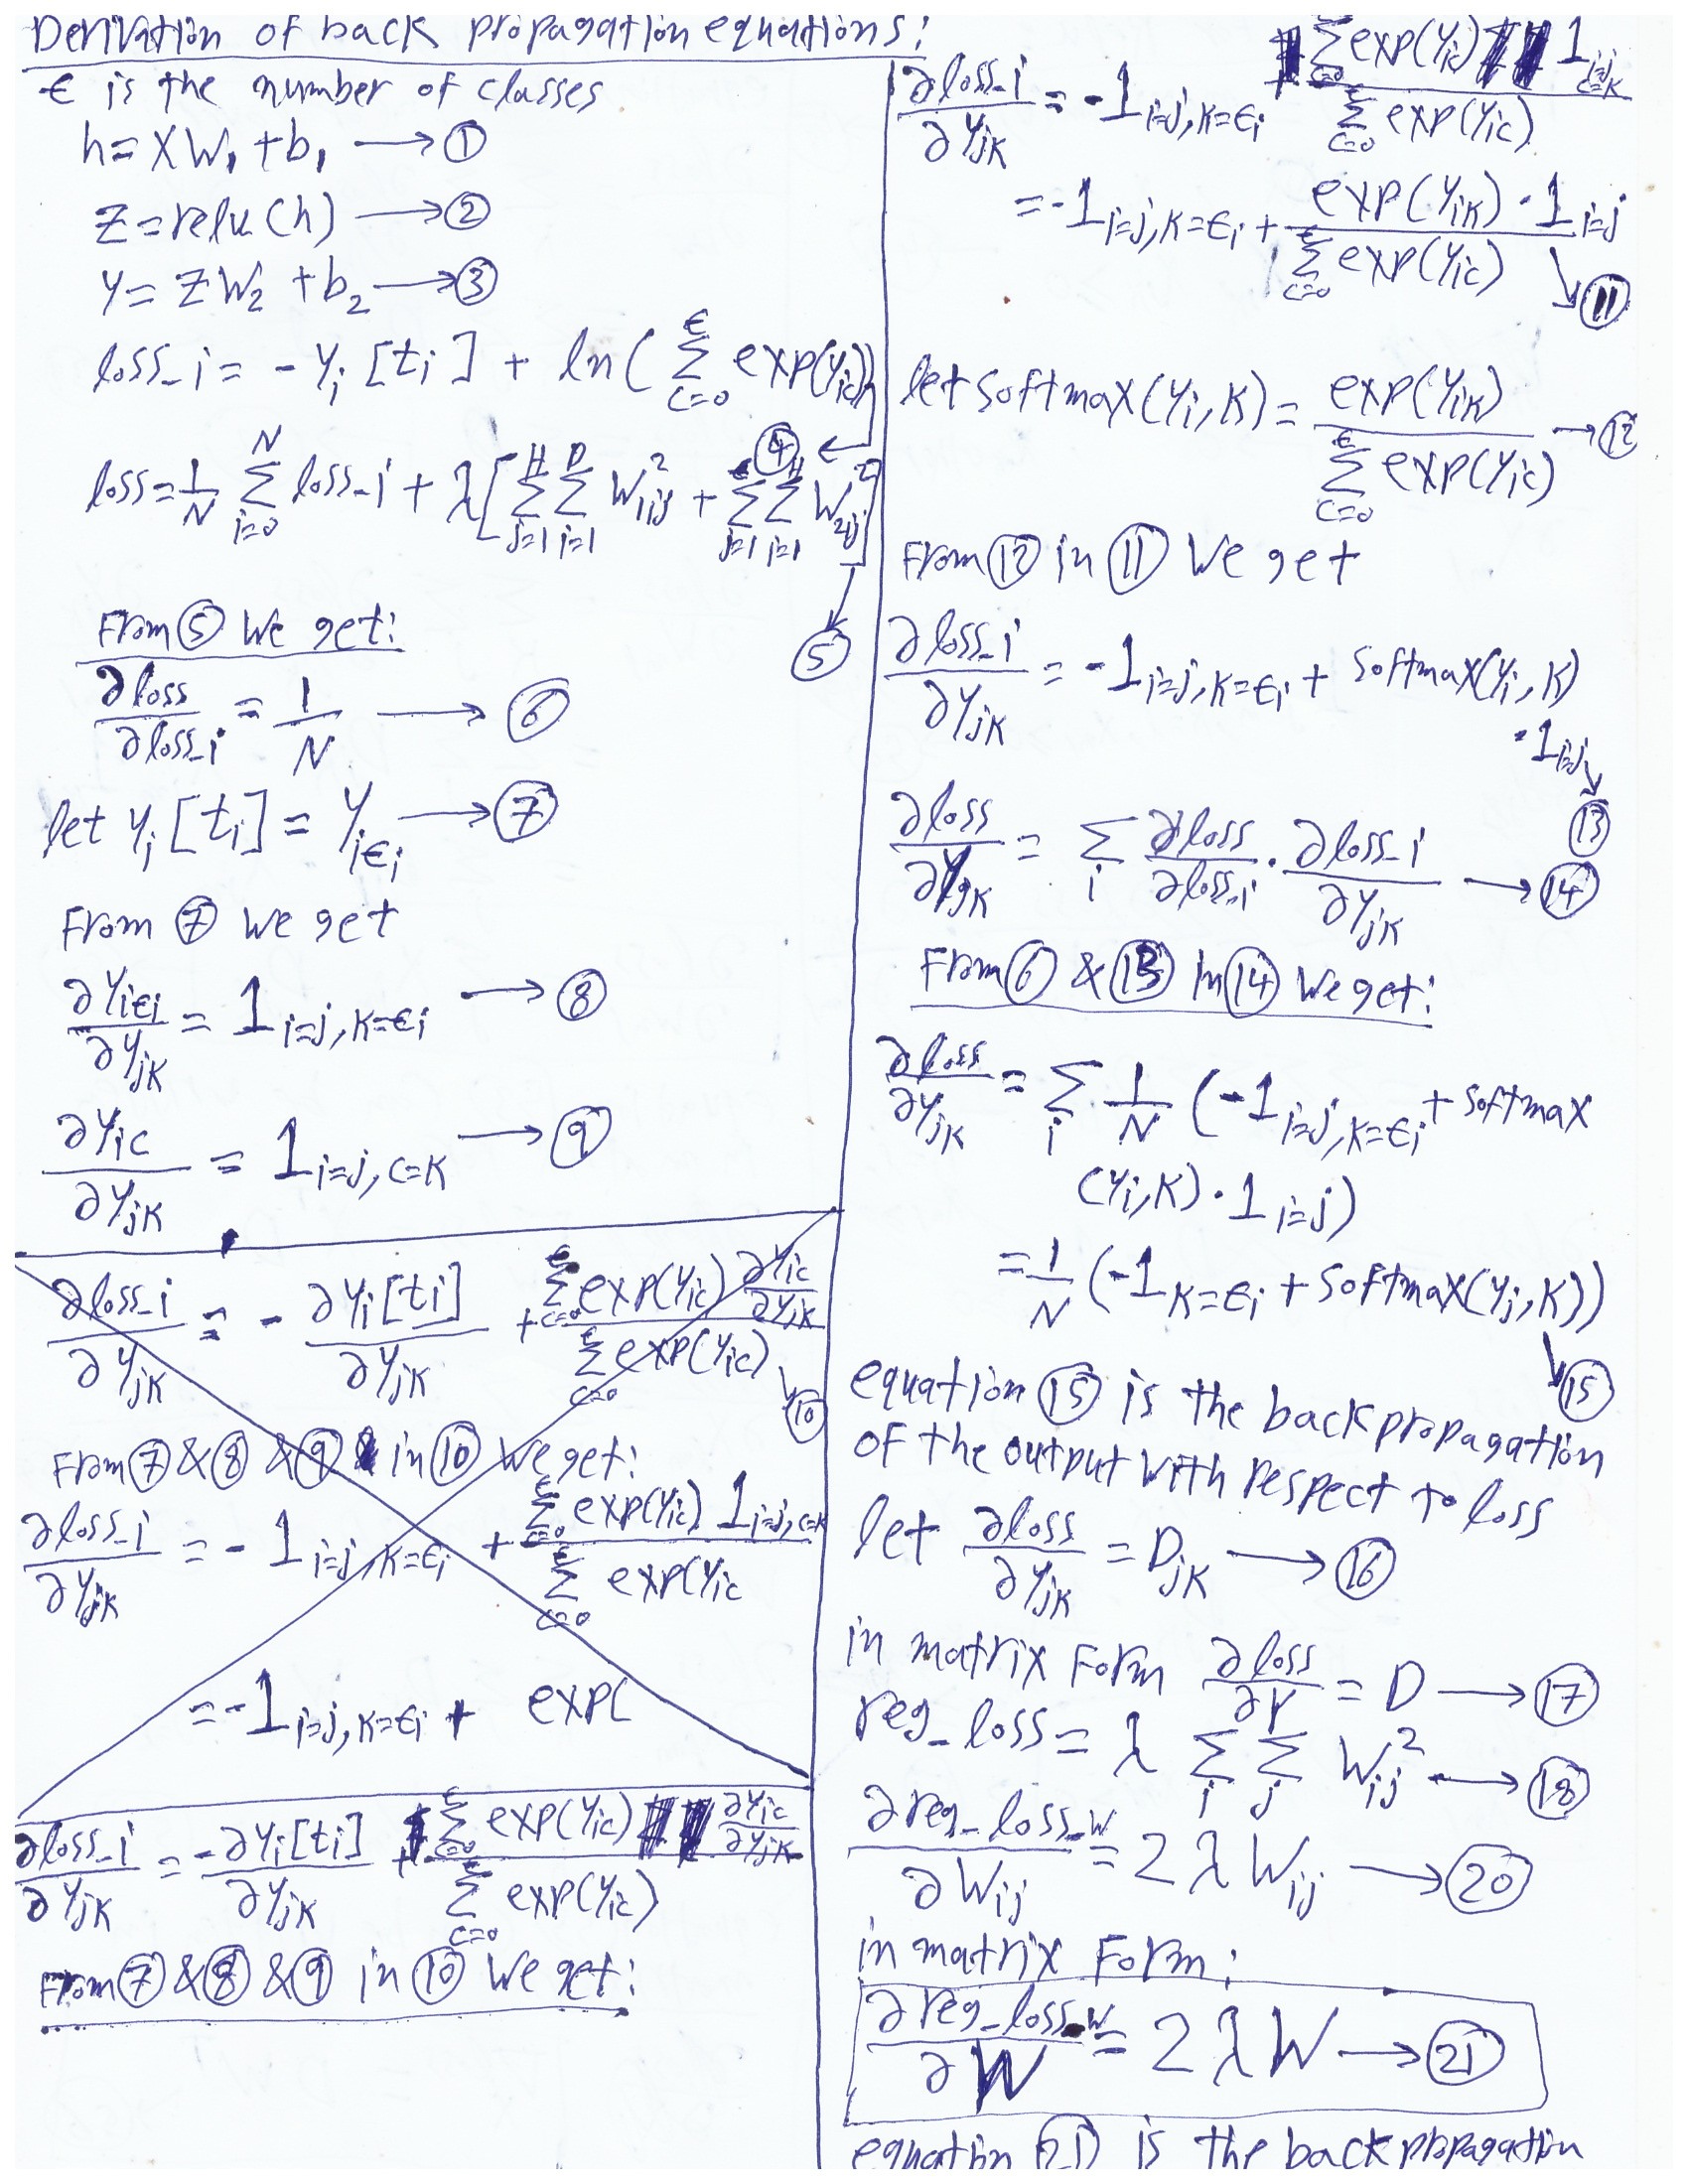 Derivation of back propagation equations:
ϵ is the number of classes
h = XW₁ + b₁ → ①
Z = relu(h) → ②
Y = ZW₂ + b₂ → ③
loss_i = -Y_i[t_i] + ln(∑_{c=0}^{ϵ} exp(Y_ic)) → ④
loss = 1/N ∑_{i=0}^{N} loss_i + λ[∑_{j=1}^{H} ∑_{i=1}^{D} W_{1ij}² + ∑_{j=1}^{ϵ} ∑_{i=1}^{H} W_{2ij}²] → ⑤
From ⑤ we get:
∂loss/∂loss_i = 1/N → ⑥
let Y_i[t_i] = Y_{iϵ_i} → ⑦
From ⑦ we get
∂Y_{iϵ_i}/∂Y_jK = 1_{i=j, K=ϵ_i} → ⑧
∂Y_ic/∂Y_jK = 1_{i=j, c=K} → ⑨
∂loss_i/∂Y_jK = - ∂Y_i[t_i]/∂Y_jK + ∑_{c=0}^{ϵ} exp(Y_ic) ∂Y_ic/∂Y_jK / ∑_{c=0}^{ϵ} exp(Y_ic) → ⑩
From ⑦ & ⑧ & ⑨ in ⑩ we get:
∂loss_i/∂Y_jK = - 1_{i=j, K=ϵ_i} + ∑_{c=0}^{ϵ} exp(Y_ic) 1_{i=j, c=K} / ∑_{c=0}^{ϵ} exp(Y_ic
= -1_{i=j, K=ϵ_i} + exp(
∂loss_i/∂Y_jK = - ∂Y_i[t_i]/∂Y_jK + ∑_{c=0}^{ϵ} exp(Y_ic) ∂Y_ic/∂Y_jK / ∑_{c=0}^{ϵ} exp(Y_ic)
From ⑦ & ⑧ & ⑨ in ⑩ we get:
∂loss_i/∂Y_jK = -1_{i=j, K=ϵ_i} ∑_{c=0}^{ϵ} exp(Y_ic) 1_{i=j, c=K} / ∑_{c=0}^{ϵ} exp(Y_ic)
= -1_{i=j, K=ϵ_i} + exp(Y_iK) · 1_{i=j} / ∑_{c=0}^{ϵ} exp(Y_ic) → ⑪
let softmax(Y_i, K) = exp(Y_iK) / ∑_{c=0}^{ϵ} exp(Y_ic) → ⑫
From ⑫ in ⑪ we get
∂loss_i/∂Y_jK = -1_{i=j, K=ϵ_i} + softmax(Y_i, K)
· 1_{i=j} → ⑬
∂loss/∂Y_jK = ∑_i ∂loss/∂loss_i · ∂loss_i/∂Y_jK → ⑭
From ⑥ & ⑬ in ⑭ we get:
∂loss/∂Y_jK = ∑_i 1/N (-1_{i=j, K=ϵ_i} + softmax
(Y_i, K) · 1_{i=j})
= 1/N (-1_{K=ϵ_i} + softmax(Y_j, K)) → ⑮
equation ⑮ is the backpropagation
of the output with respect to loss
let ∂loss/∂Y_jK = D_jK → ⑯
in matrix form ∂loss/∂Y = D → ⑰
reg_loss = λ ∑_i ∑_j W_ij² → ⑱
∂reg_loss_w/∂W_ij = 2λW_ij → ⑳
in matrix form:
∂reg_loss_w/∂W = 2λW → ㉑
equation ㉑ is the backpropagation